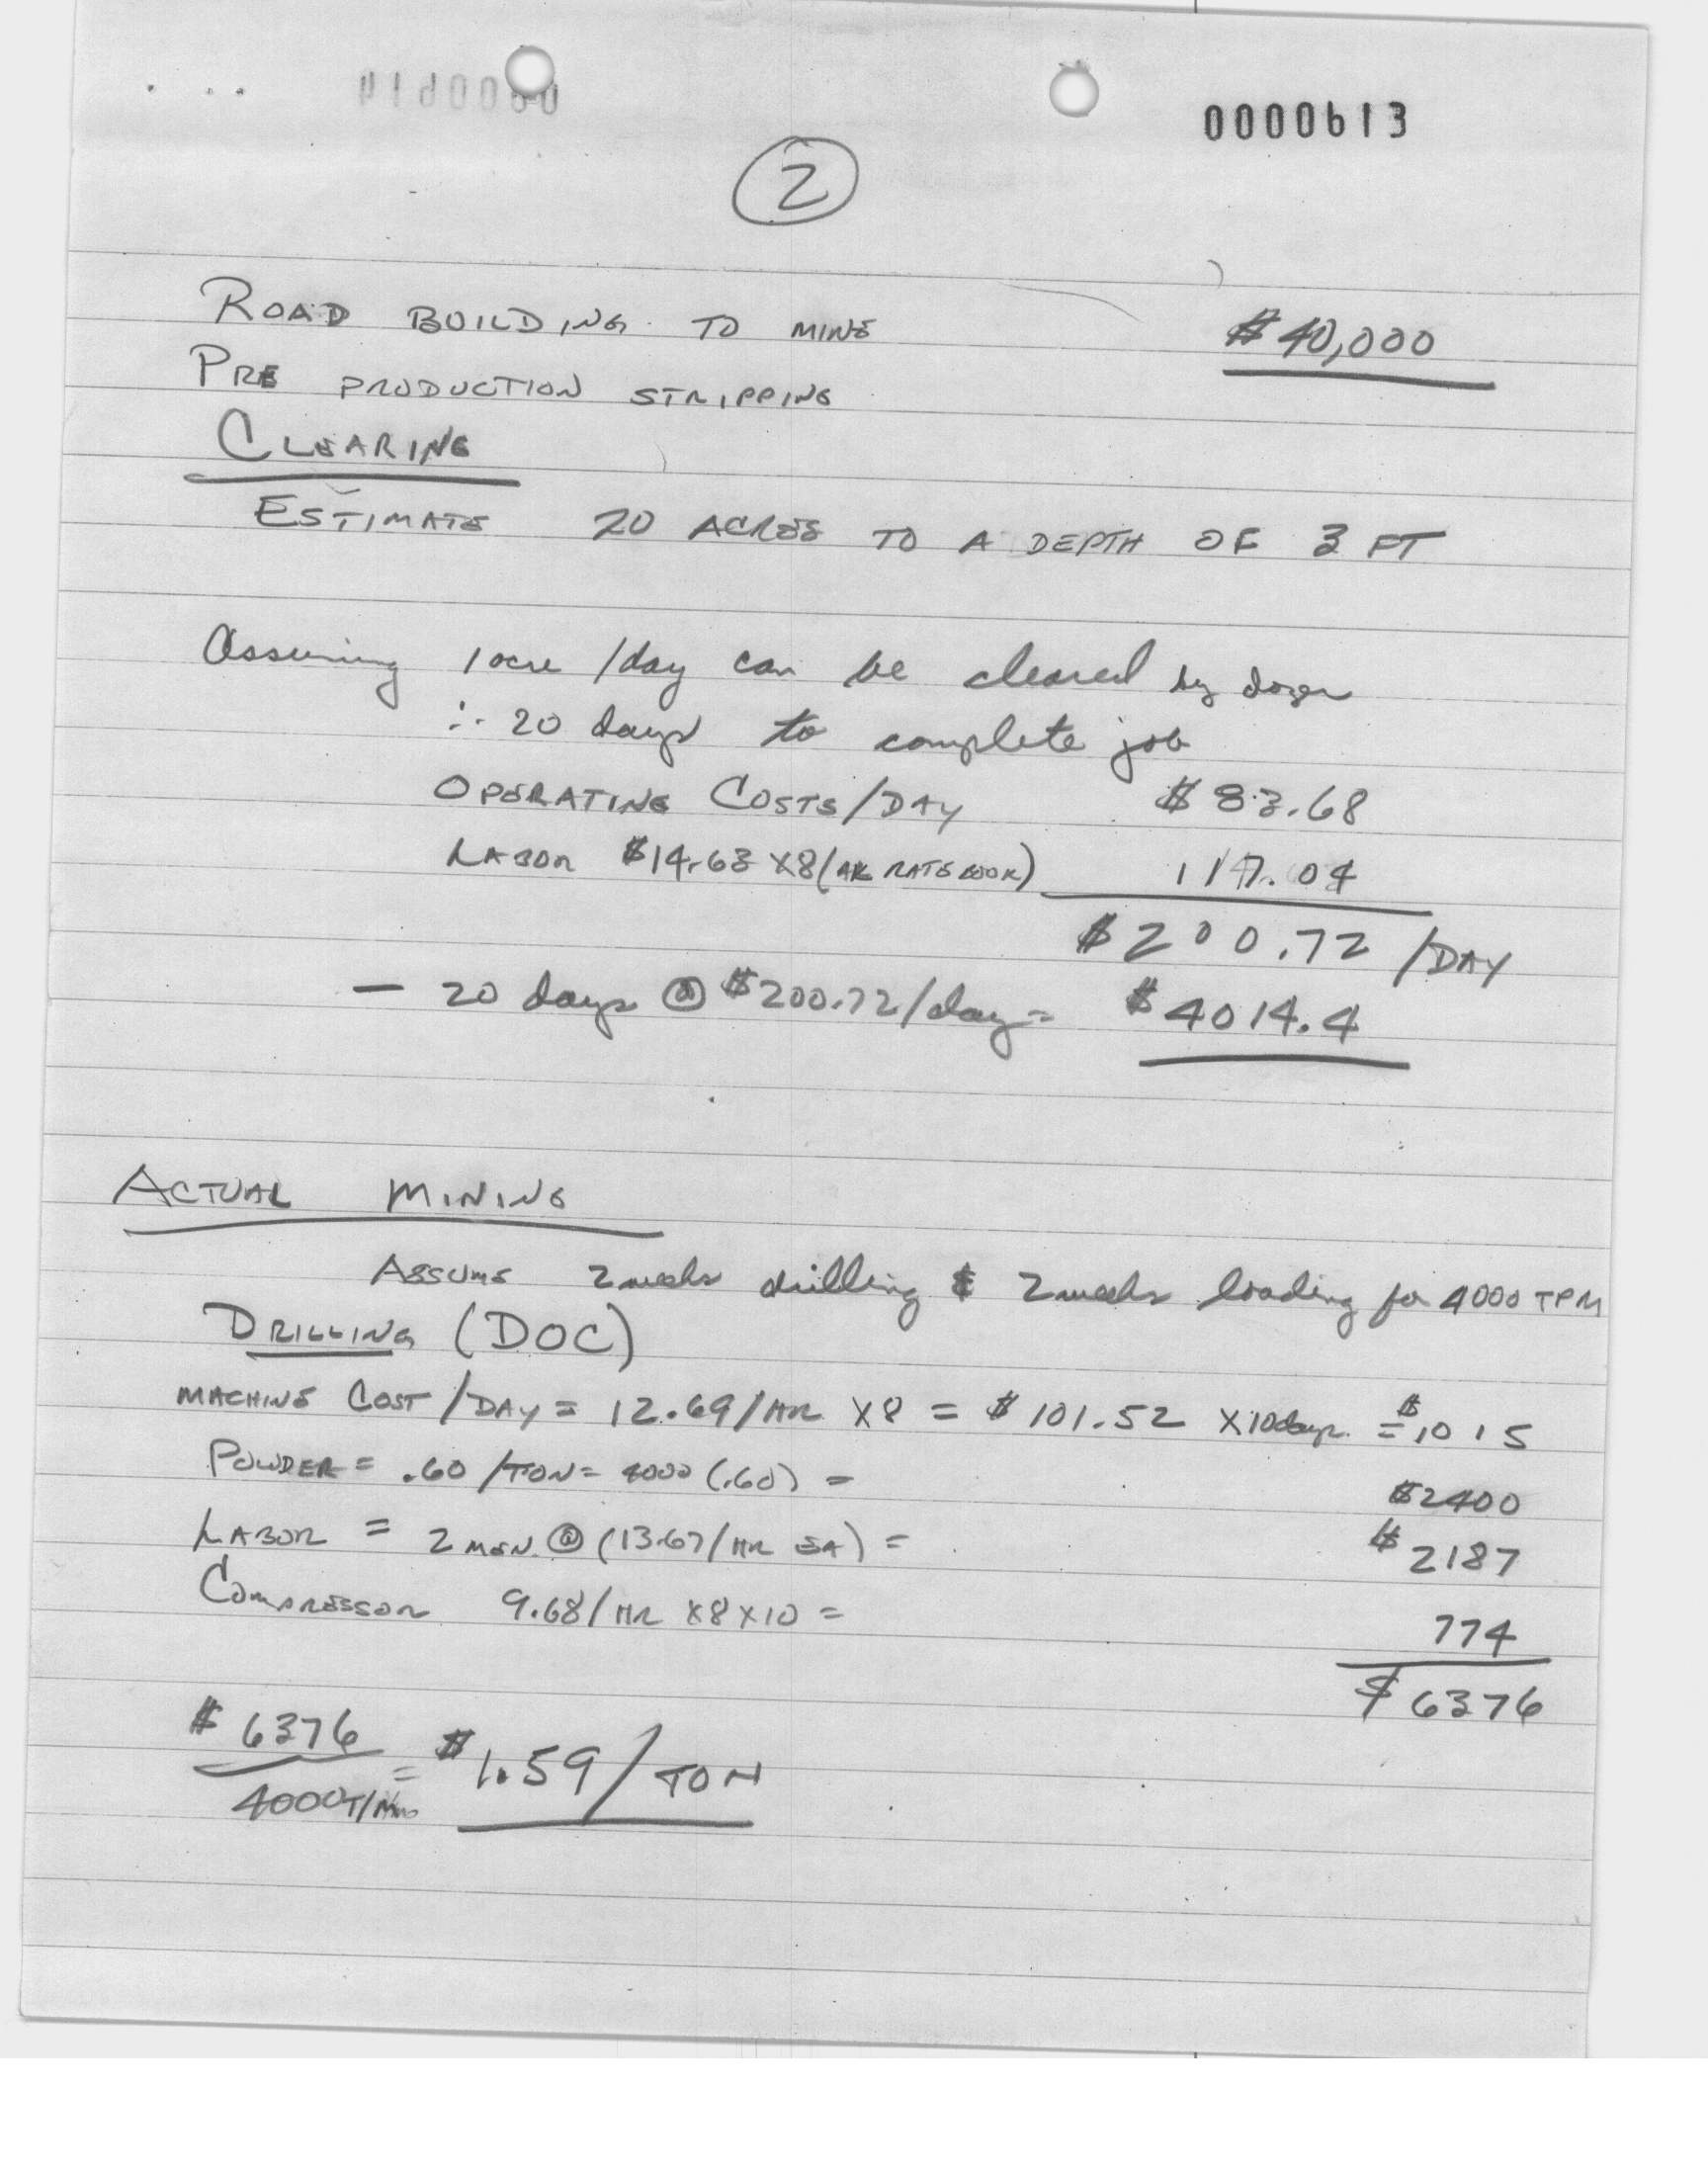 0000613
2
ROAD BUILDING TO MINE $40,000
PRE PRODUCTION STRIPPING
CLEARING
ESTIMATE 20 ACRES TO A DEPTH OF 3 FT
Assuming 1 acre /day can be cleared by dozer
∴ 20 days to complete job
OPERATING COSTS/DAY $83.68
LABOR $14.63 X8 (AK RATE BOOK) 117.04
$200.72 /DAY
— 20 days @ $200.72/day = $4014.4
ACTUAL MINING
ASSUME 2 weeks drilling & 2 weeks loading for 4000 TPM
DRILLING (DOC)
MACHINE COST/DAY = 12.69/HR X8 = $101.52 X10days = $1015
POWDER = .60/TON = 4000 (.60) = $2400
LABOR = 2 MEN @ (13.67/HR EA) = $2187
COMPRESSOR 9.68/HR X8X10 = 774
$6376
$6376
4000T/Mo = $1.59/TON